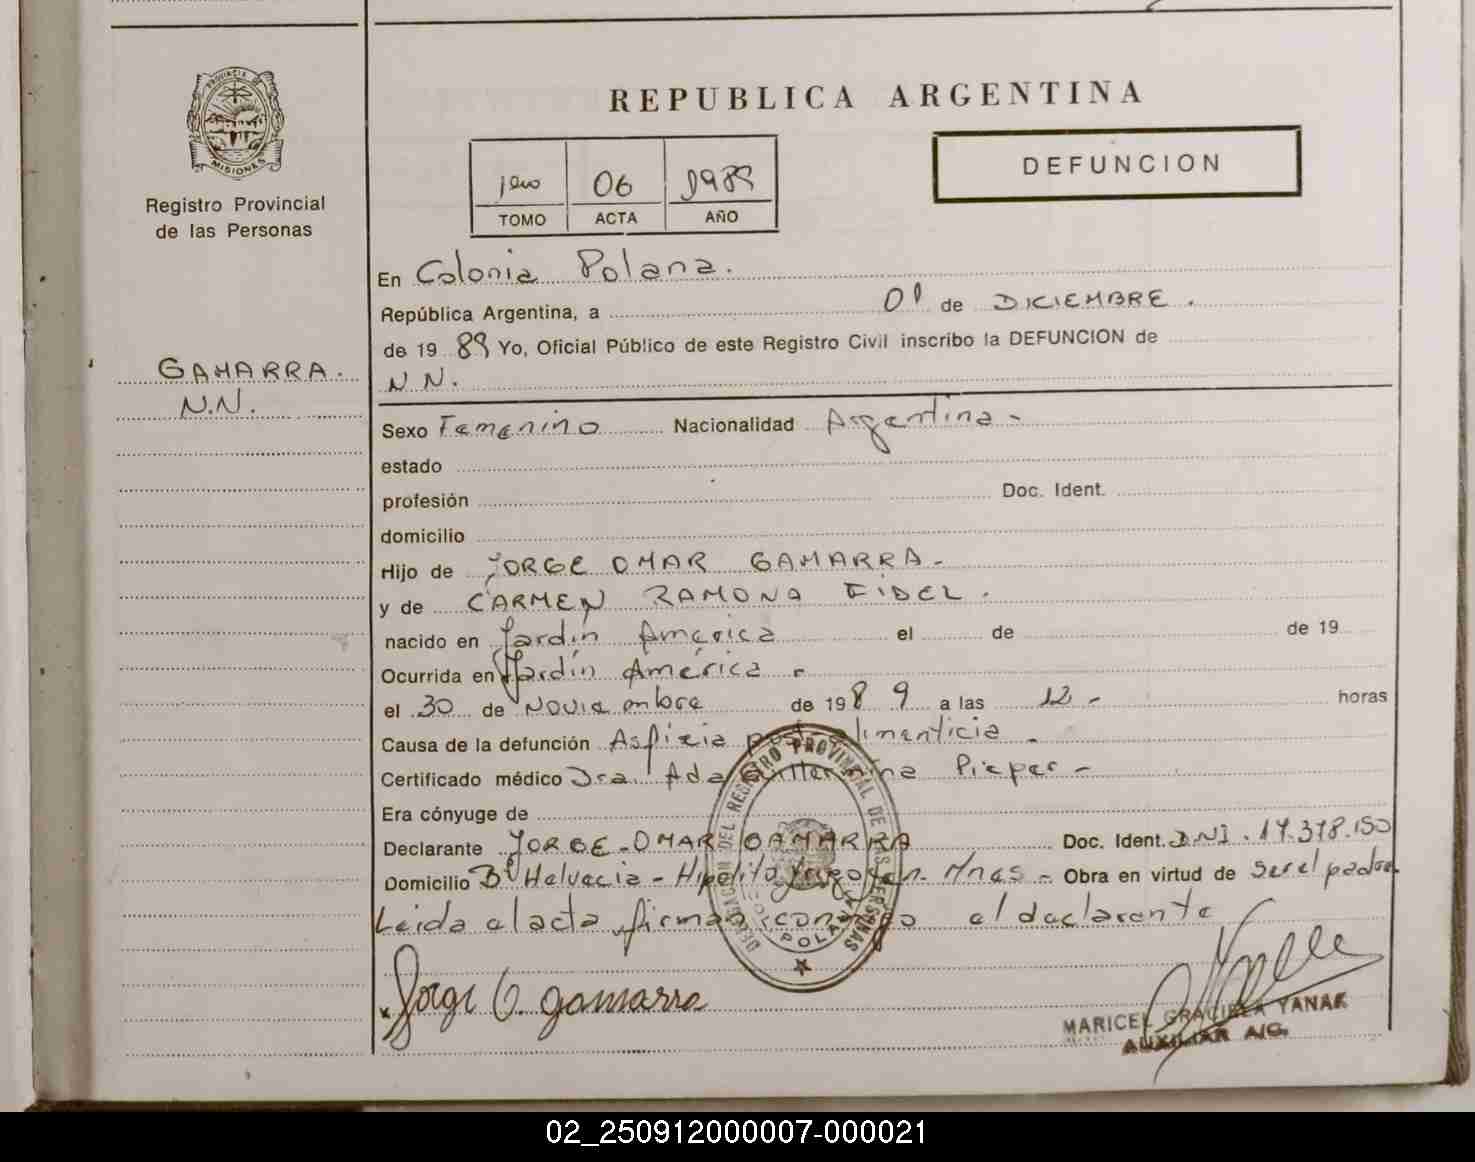 PROVINCIA DE
MISIONES
Registro Provincial
de las Personas
GAMARRA.
N.N.
REPUBLICA ARGENTINA
DEFUNCION
1ero 06 1989
TOMO ACTA AÑO
En Colonia Polana.
República Argentina, a 01 de DICIEMBRE.
de 19 89 Yo, Oficial Público de este Registro Civil inscribo la DEFUNCION de
N N.
Sexo Femenino Nacionalidad Argentina -
estado
profesión Doc. Ident.
domicilio
Hijo de JORGE OMAR GAMARRA -
y de CARMEN RAMONA FIDEL.
nacido en Jardín América el de de 19
Ocurrida en Jardín América -
el 30 de Noviembre de 1989 a las 12 - horas
Causa de la defunción Asfixia post-alimenticia -
Certificado médico Dra. Ada Guillermina Pieper -
Era cónyuge de
Declarante JORGE OMAR GAMARRA Doc. Ident. DNI. 17.378.150
Domicilio B° Helvecia - Hipolito Yrigoyen - Mnes - Obra en virtud de ser el padre
Leida el acta, firman conmigo el declarante
DELEGACION DEL REGISTRO PROVINCIAL DE LAS PERSONAS
COL. POLANA
Jorge O. Gamarra
MARICEL GRACIELA YANAK
AUXILIAR A/C.
02_250912000007-000021